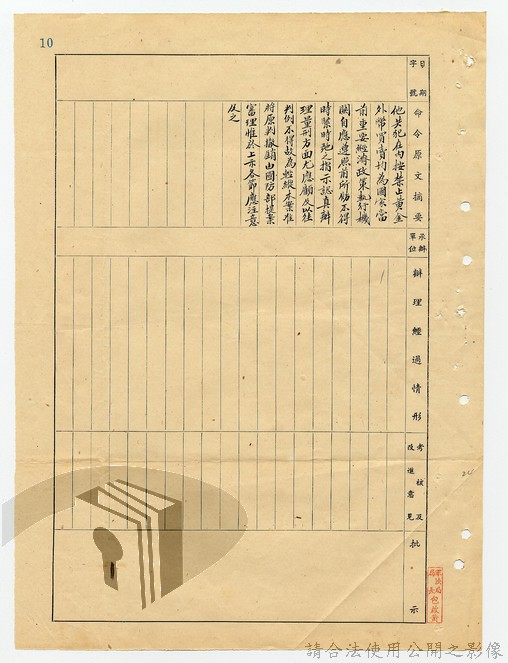 10
日期
字號
命令原文摘要
承辦單位
辦理經過情形
考核及改進意見
批示
他共犯在內按禁止黃金
外幣買賣均為國家當
前重要經濟政策執行機
關自應遵照前所飭不得
時緊時弛之指示認真辦
理量刑方面尤應顧及以往
判例不得故為輕縱本案准
將原判撤銷由國防部提案
審理惟於上示各節應注意
及之
軍法局
局長包啟黃
請合法使用公開之影像